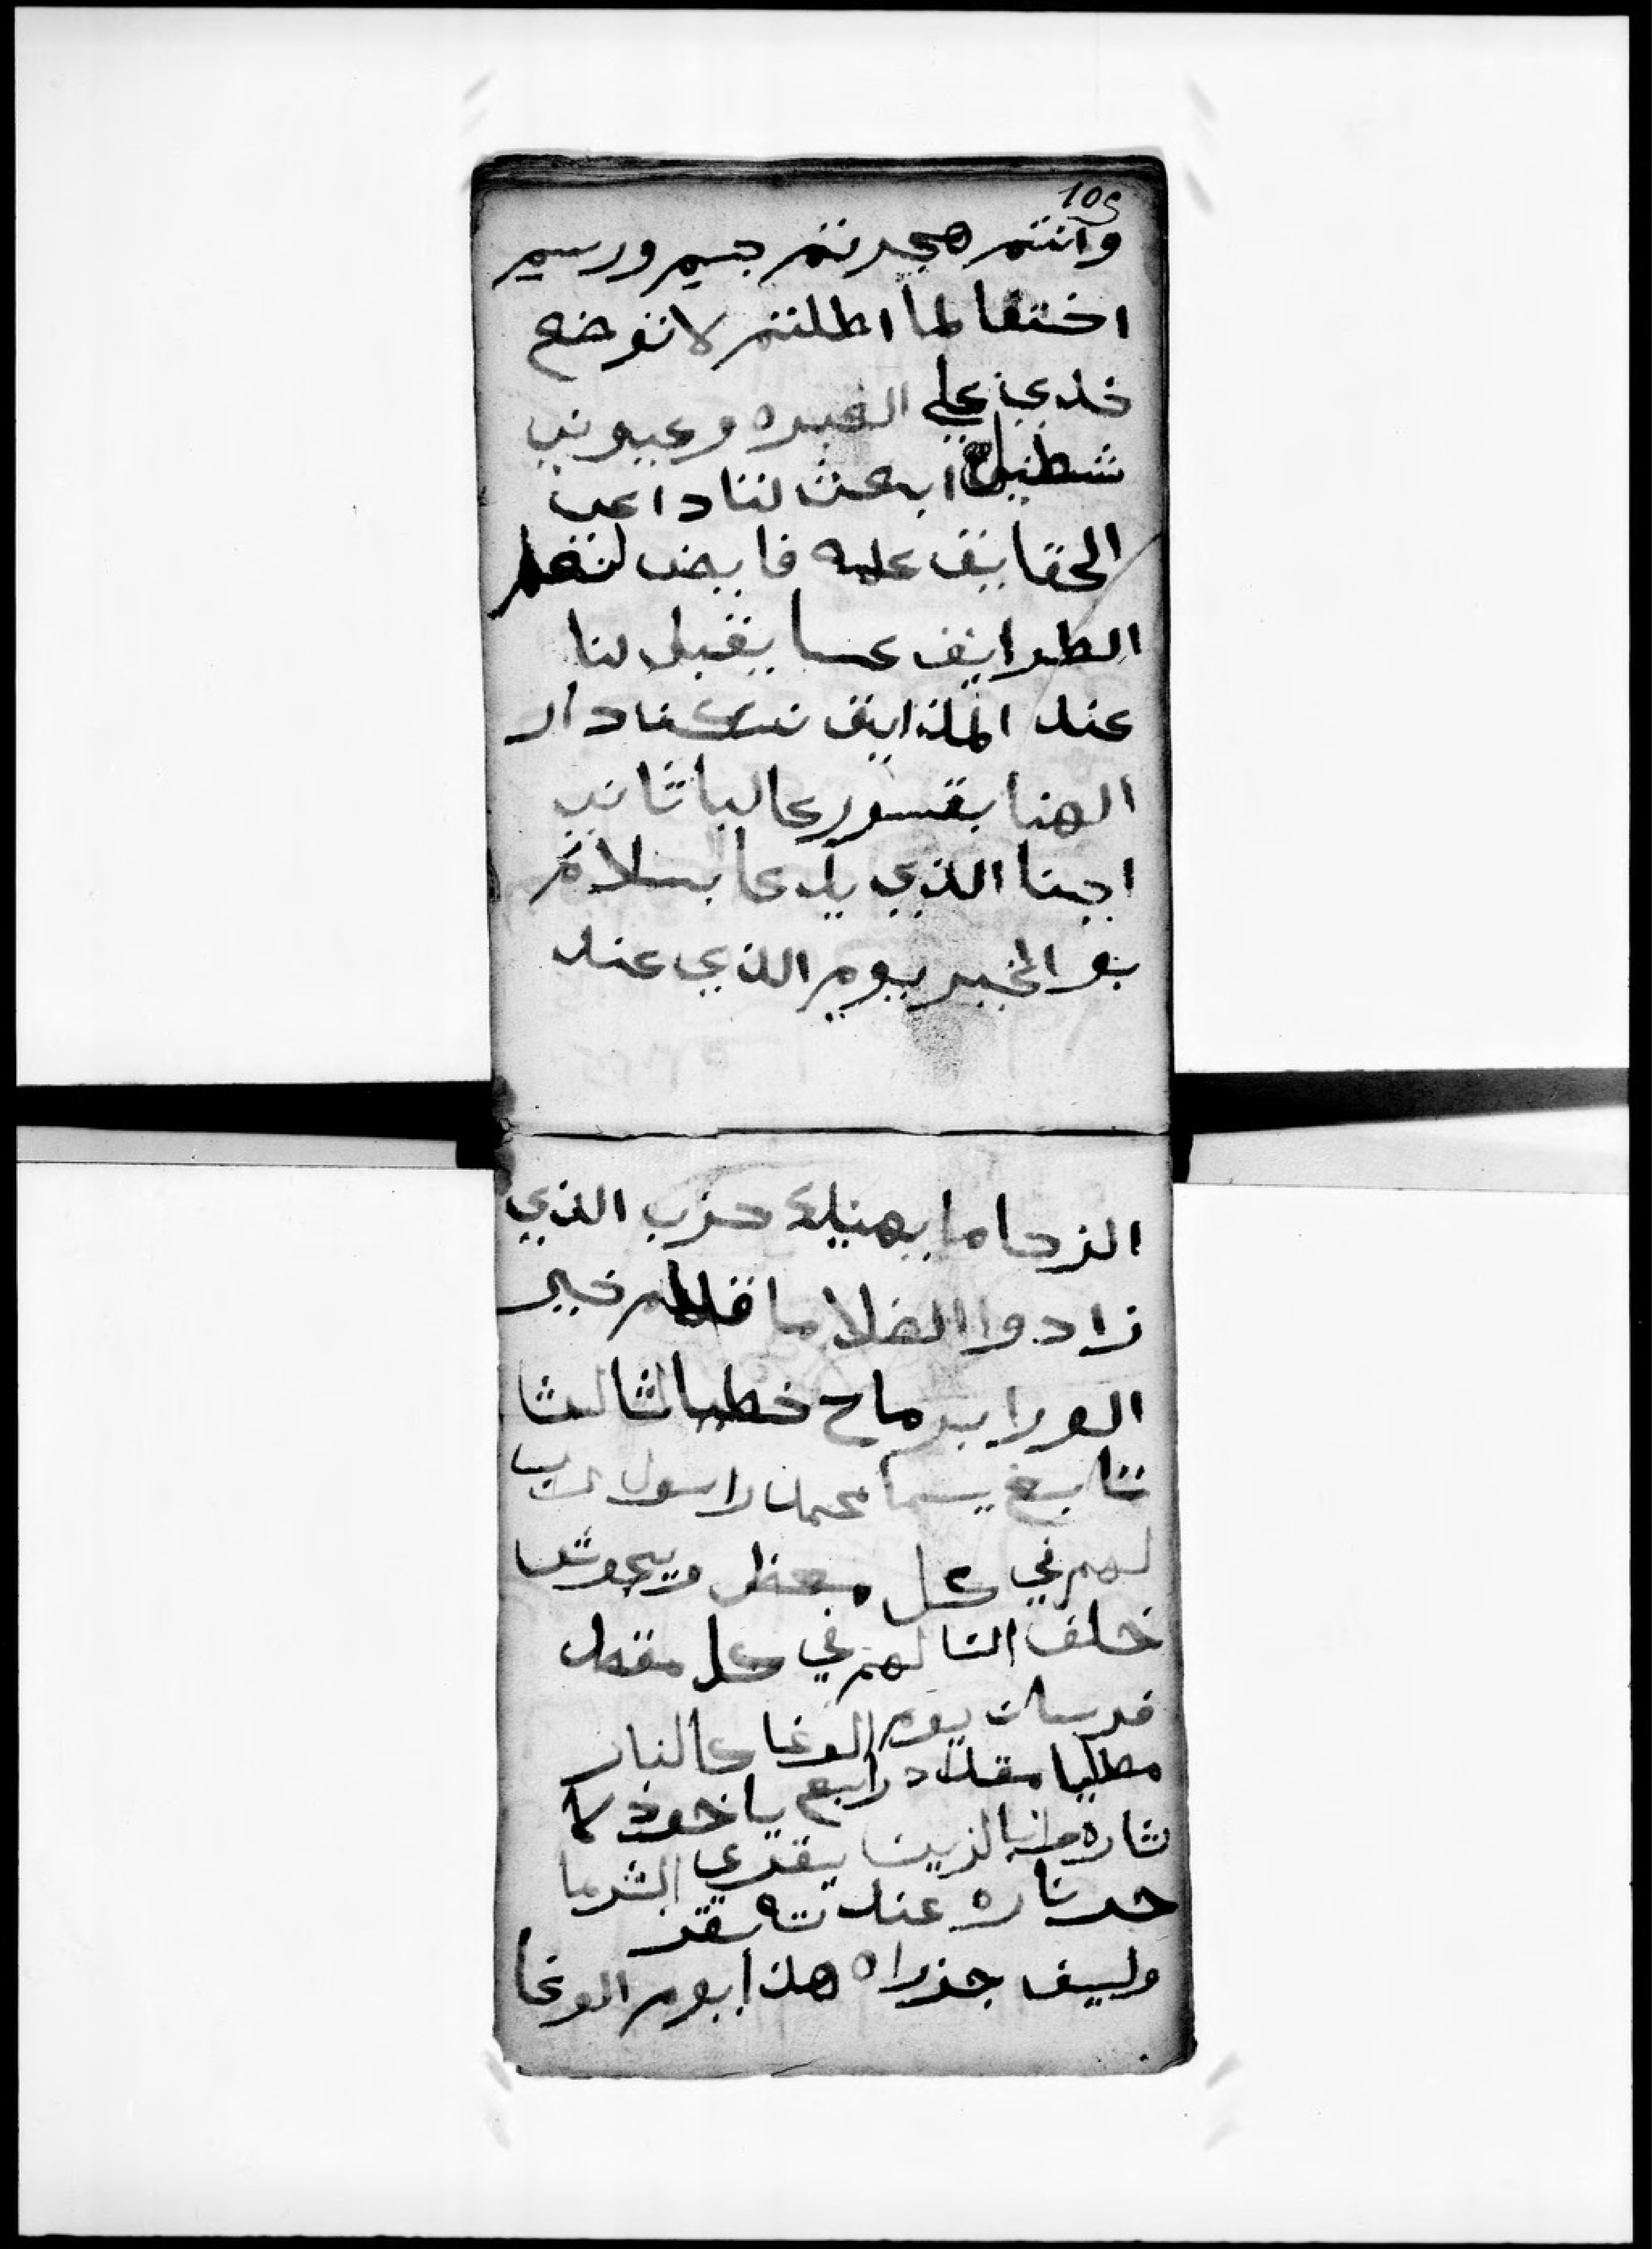 105
وانتم هجرتم جسيم ورسيم
اختفا لما اطلتم لا توضع
خدي علي العبره وعيوني
ابعث لنا داعي
الحقايق عليه فايض لنضم
الطوايف عسا يقبل لنا
عند الملذايق نسكنا دار
الهنا بقسور عاليا ثاني
اجبنا الذي يدعا بسلام
بو الخير يوم الذي عند
الزحاما يهنيك حزب الذي
زادوا الضلاما قللهم خير
الورا برماح خطيا ثالثا
تتابع يسما محمد راسول
لهم في كل معظل ويجوشا
خلف التا لهم في كل مقصد
فرسان يوم الوغا كالنار
مطليا مقلاد رابع ياخوذ لا
ثاره وانا لزين يقري الشرما
حدثاره عند
وليف جزراه هذا بوم الوغا